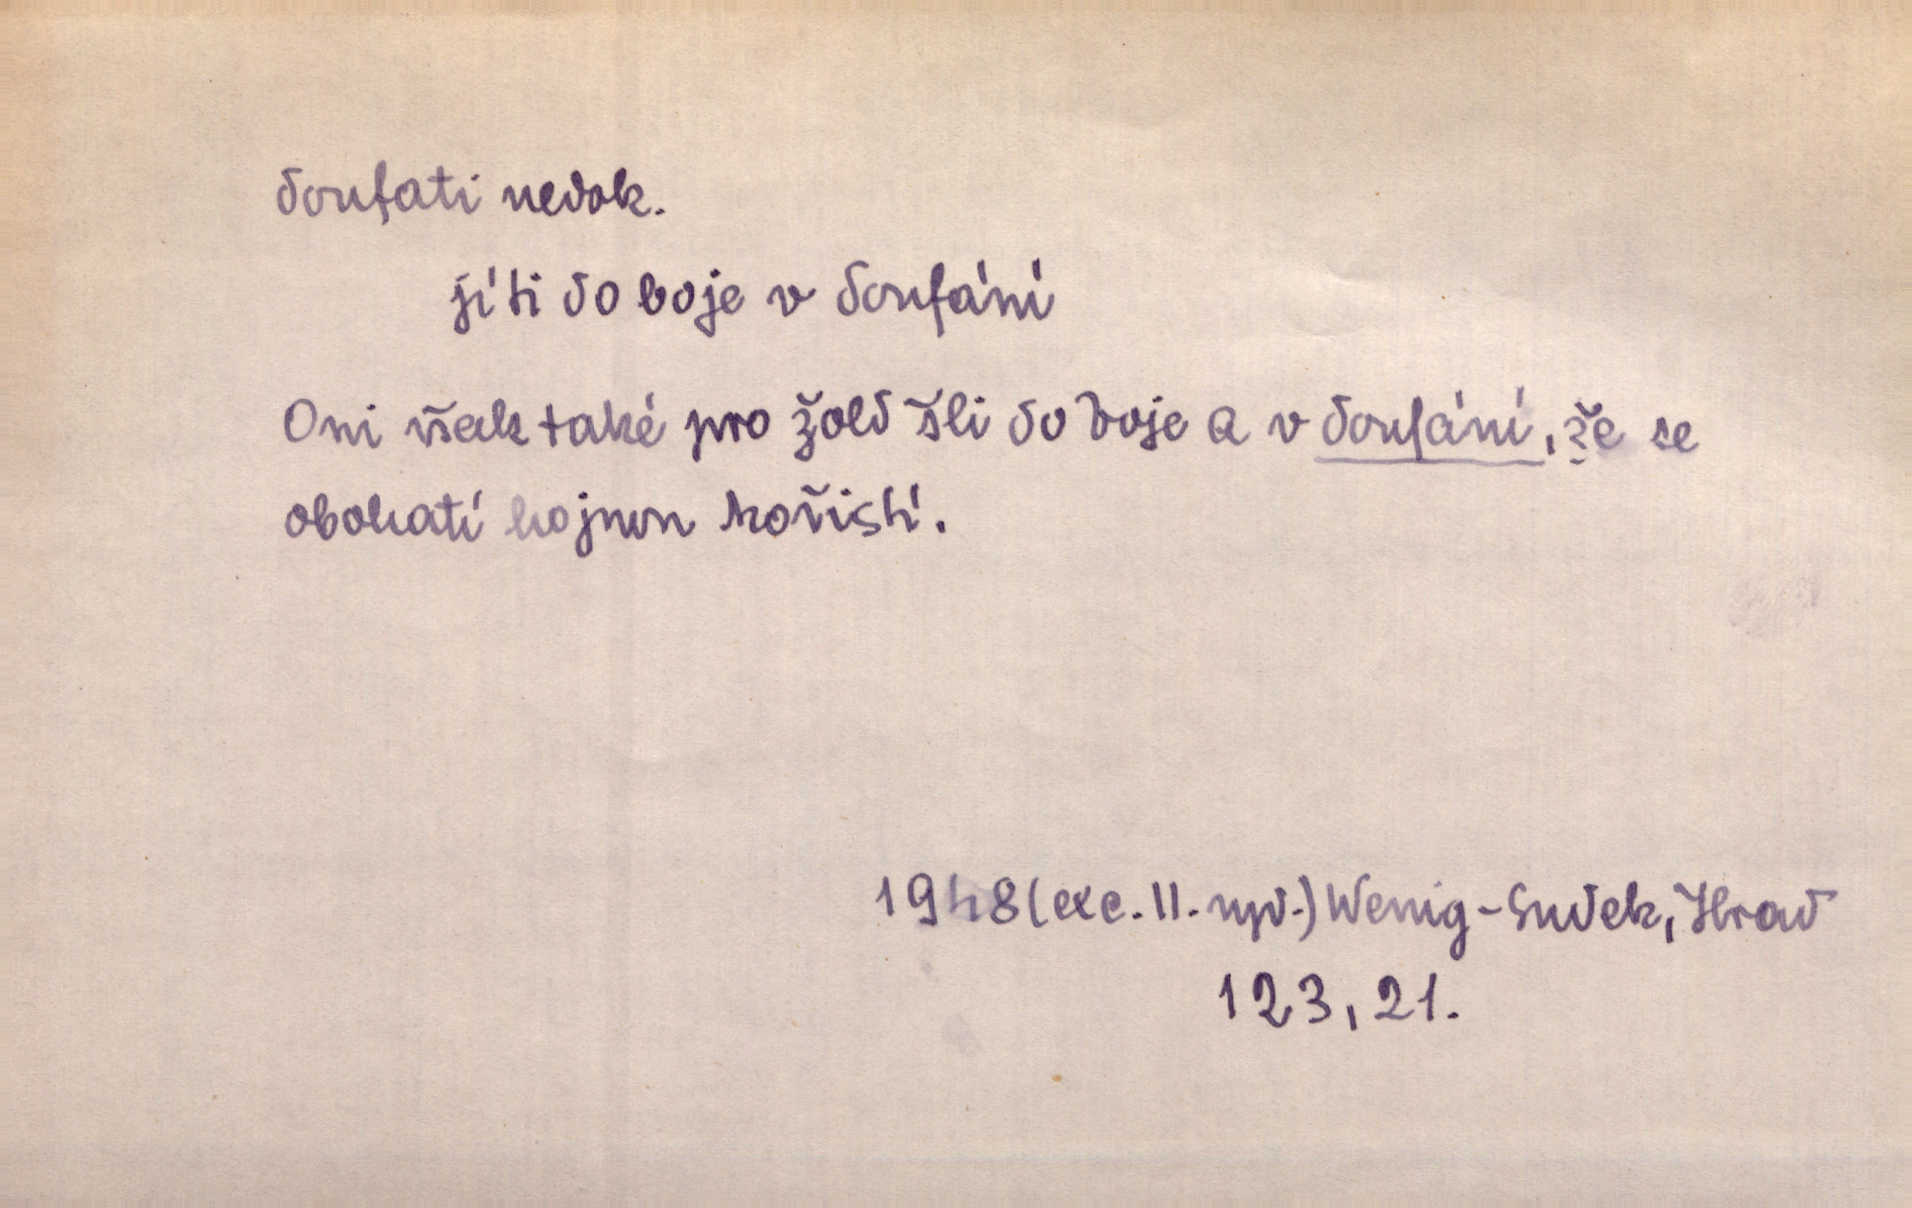 doufati nedok.
jíti do boje v doufání
Oni však také pro žold šli do boje a v doufání, že se
obohatí hojnou kořistí.
1948 (exc. II. vyd.) Wenig-Sudek, Hrad
123, 21.